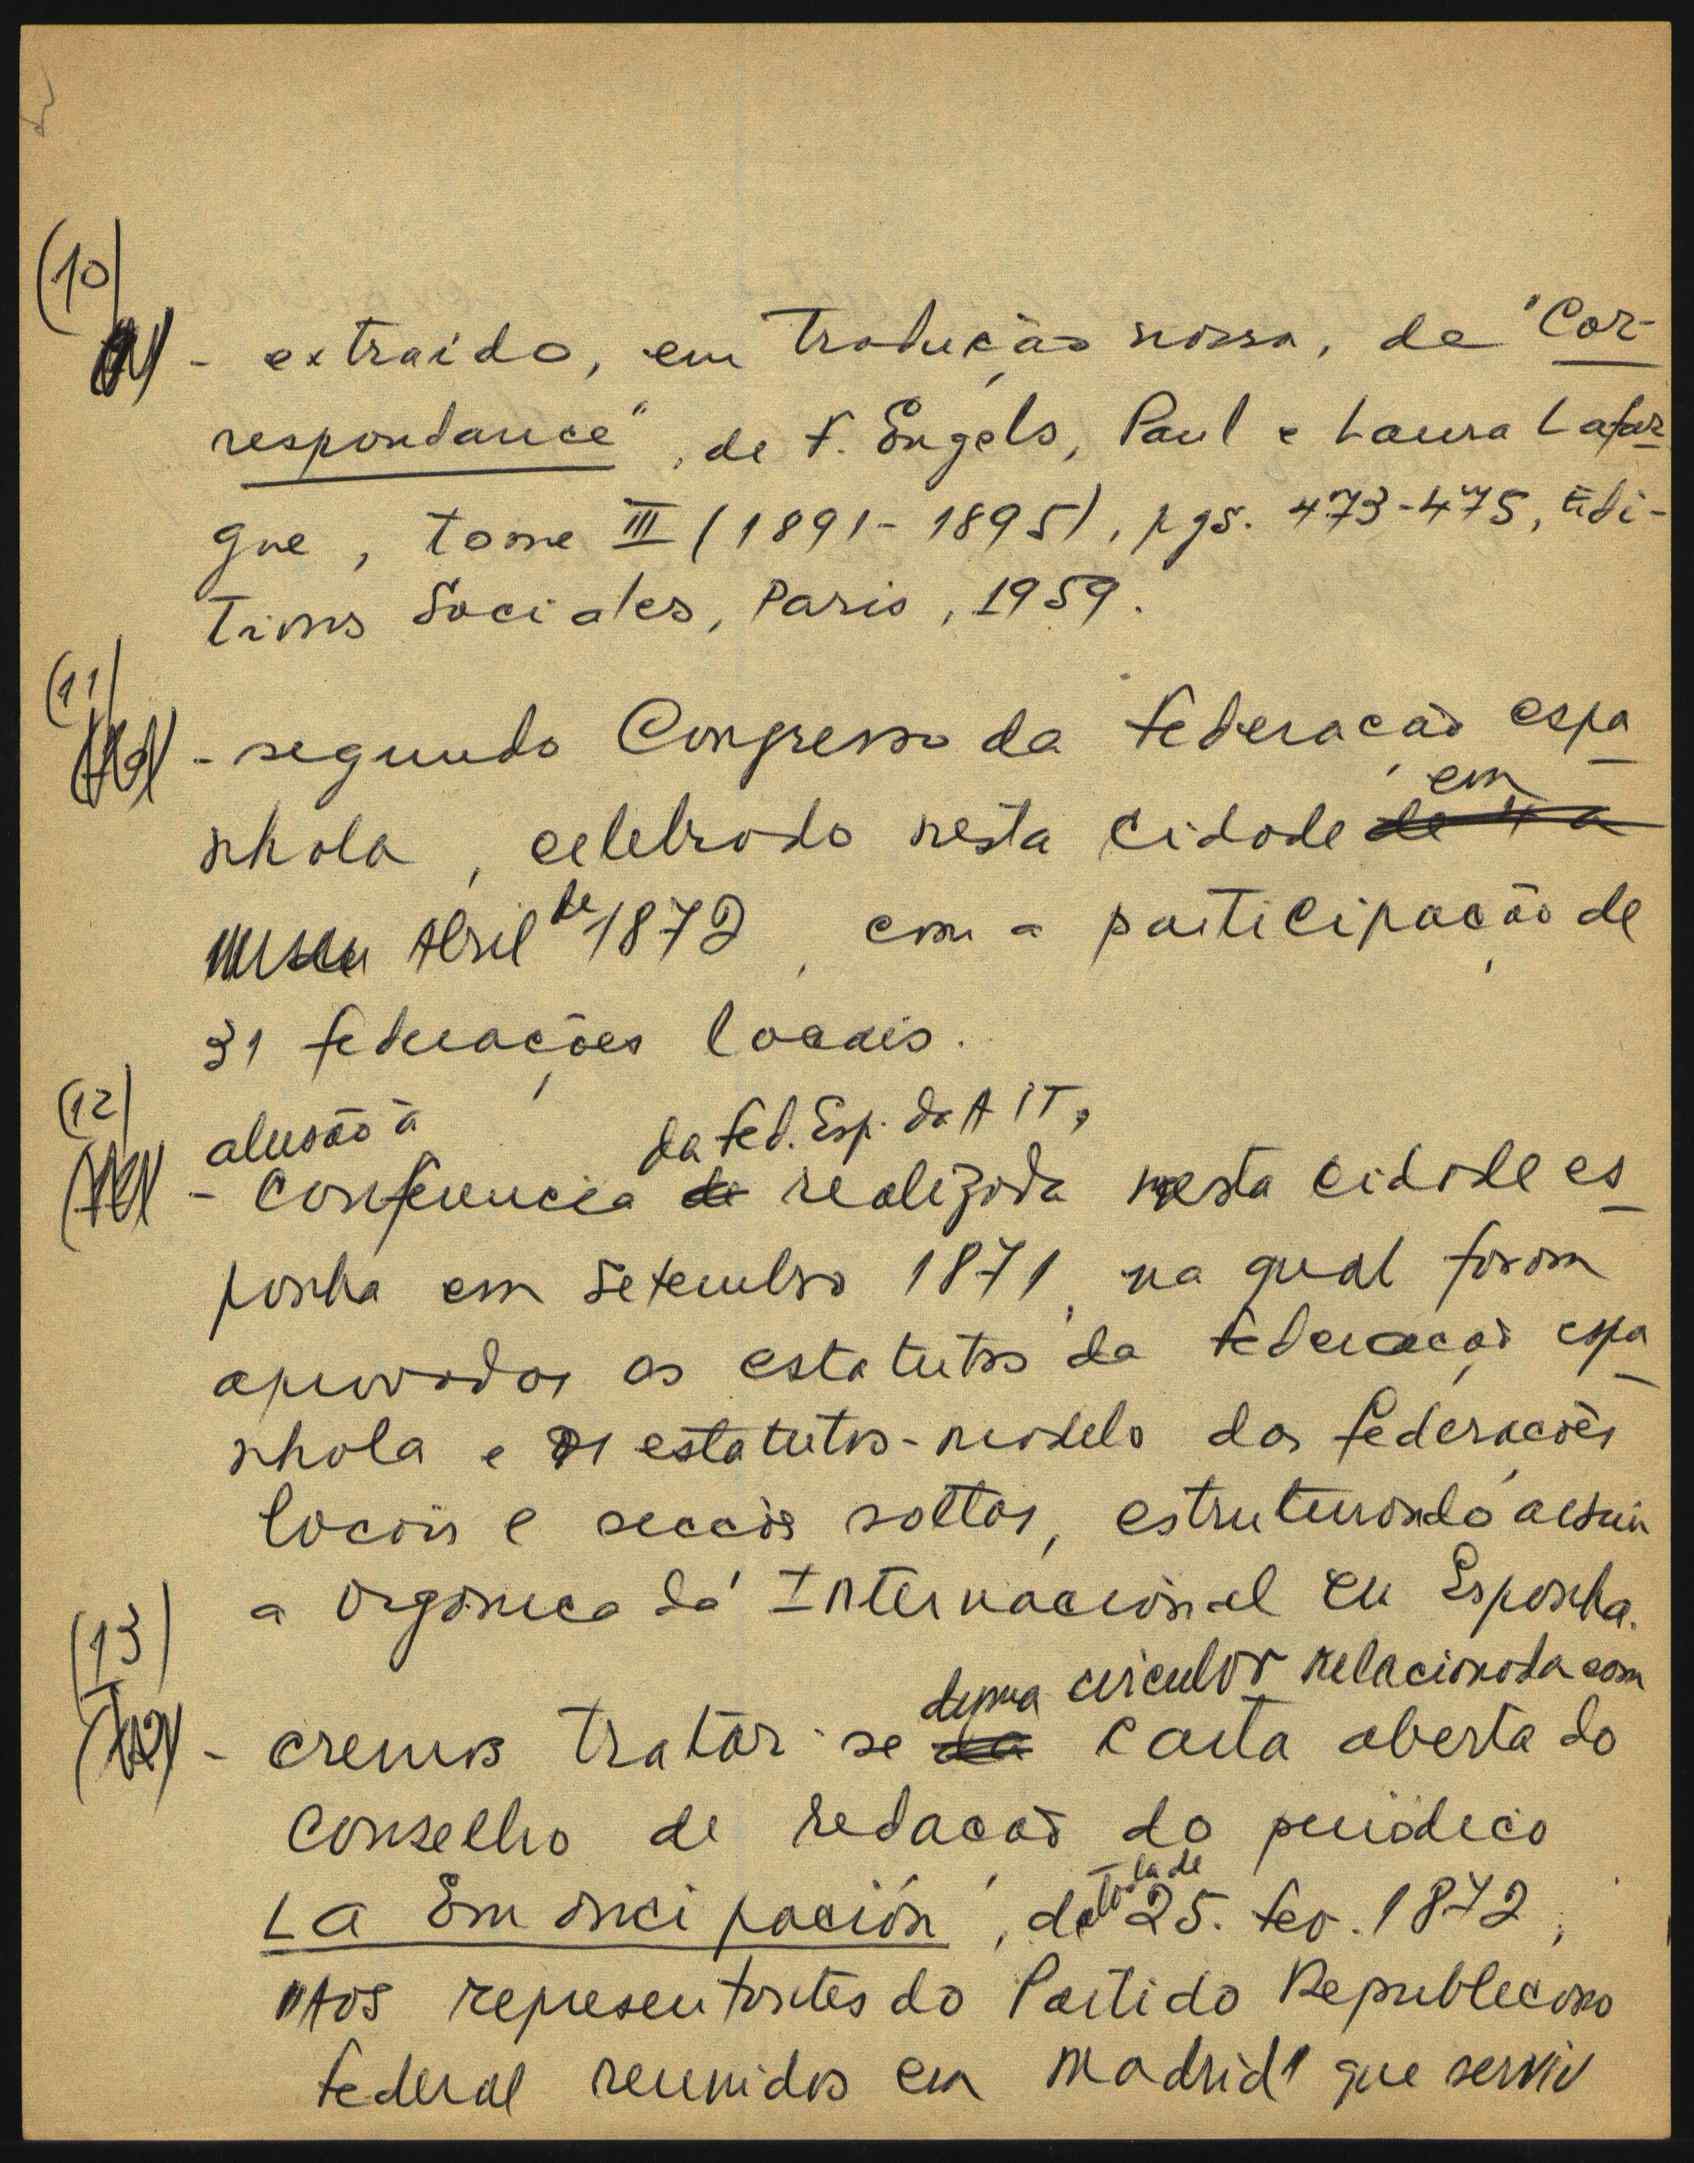 (10)
- extraído, em tradução nossa, de "Cor-
respondance", de F. Engels, Paul e Laura Lafar
gue, tome III (1891-1895), pgs. 473-475, Edi-
tions Sociales, Paris, 1959.
(11)
- segundo Congresso da Federação espa
em
nhola, celebrado nesta cidade de 4 a
Abril de 1872, com a participação de
31 federações locais.
(12)
alusão à da Fed. Esp. da AIT,
- Conferencia de realizada nesta cidade es
panha em Setembro 1871, na qual foram
aprovados os estatutos da Federação espa
nhola e os estatutos-modelo das federações
locais e secções soltas, estruturando assim
a orgânica da Internacional em Espanha.
(13)
duma circular relacionada com
- cremos tratar-se da carta aberta do
Conselho de redação do periódico
La Emancipación, datada de 25. fev. 1872,
"Aos representantes do Partido Republicano
Federal reunidos em Madrid" que serviu